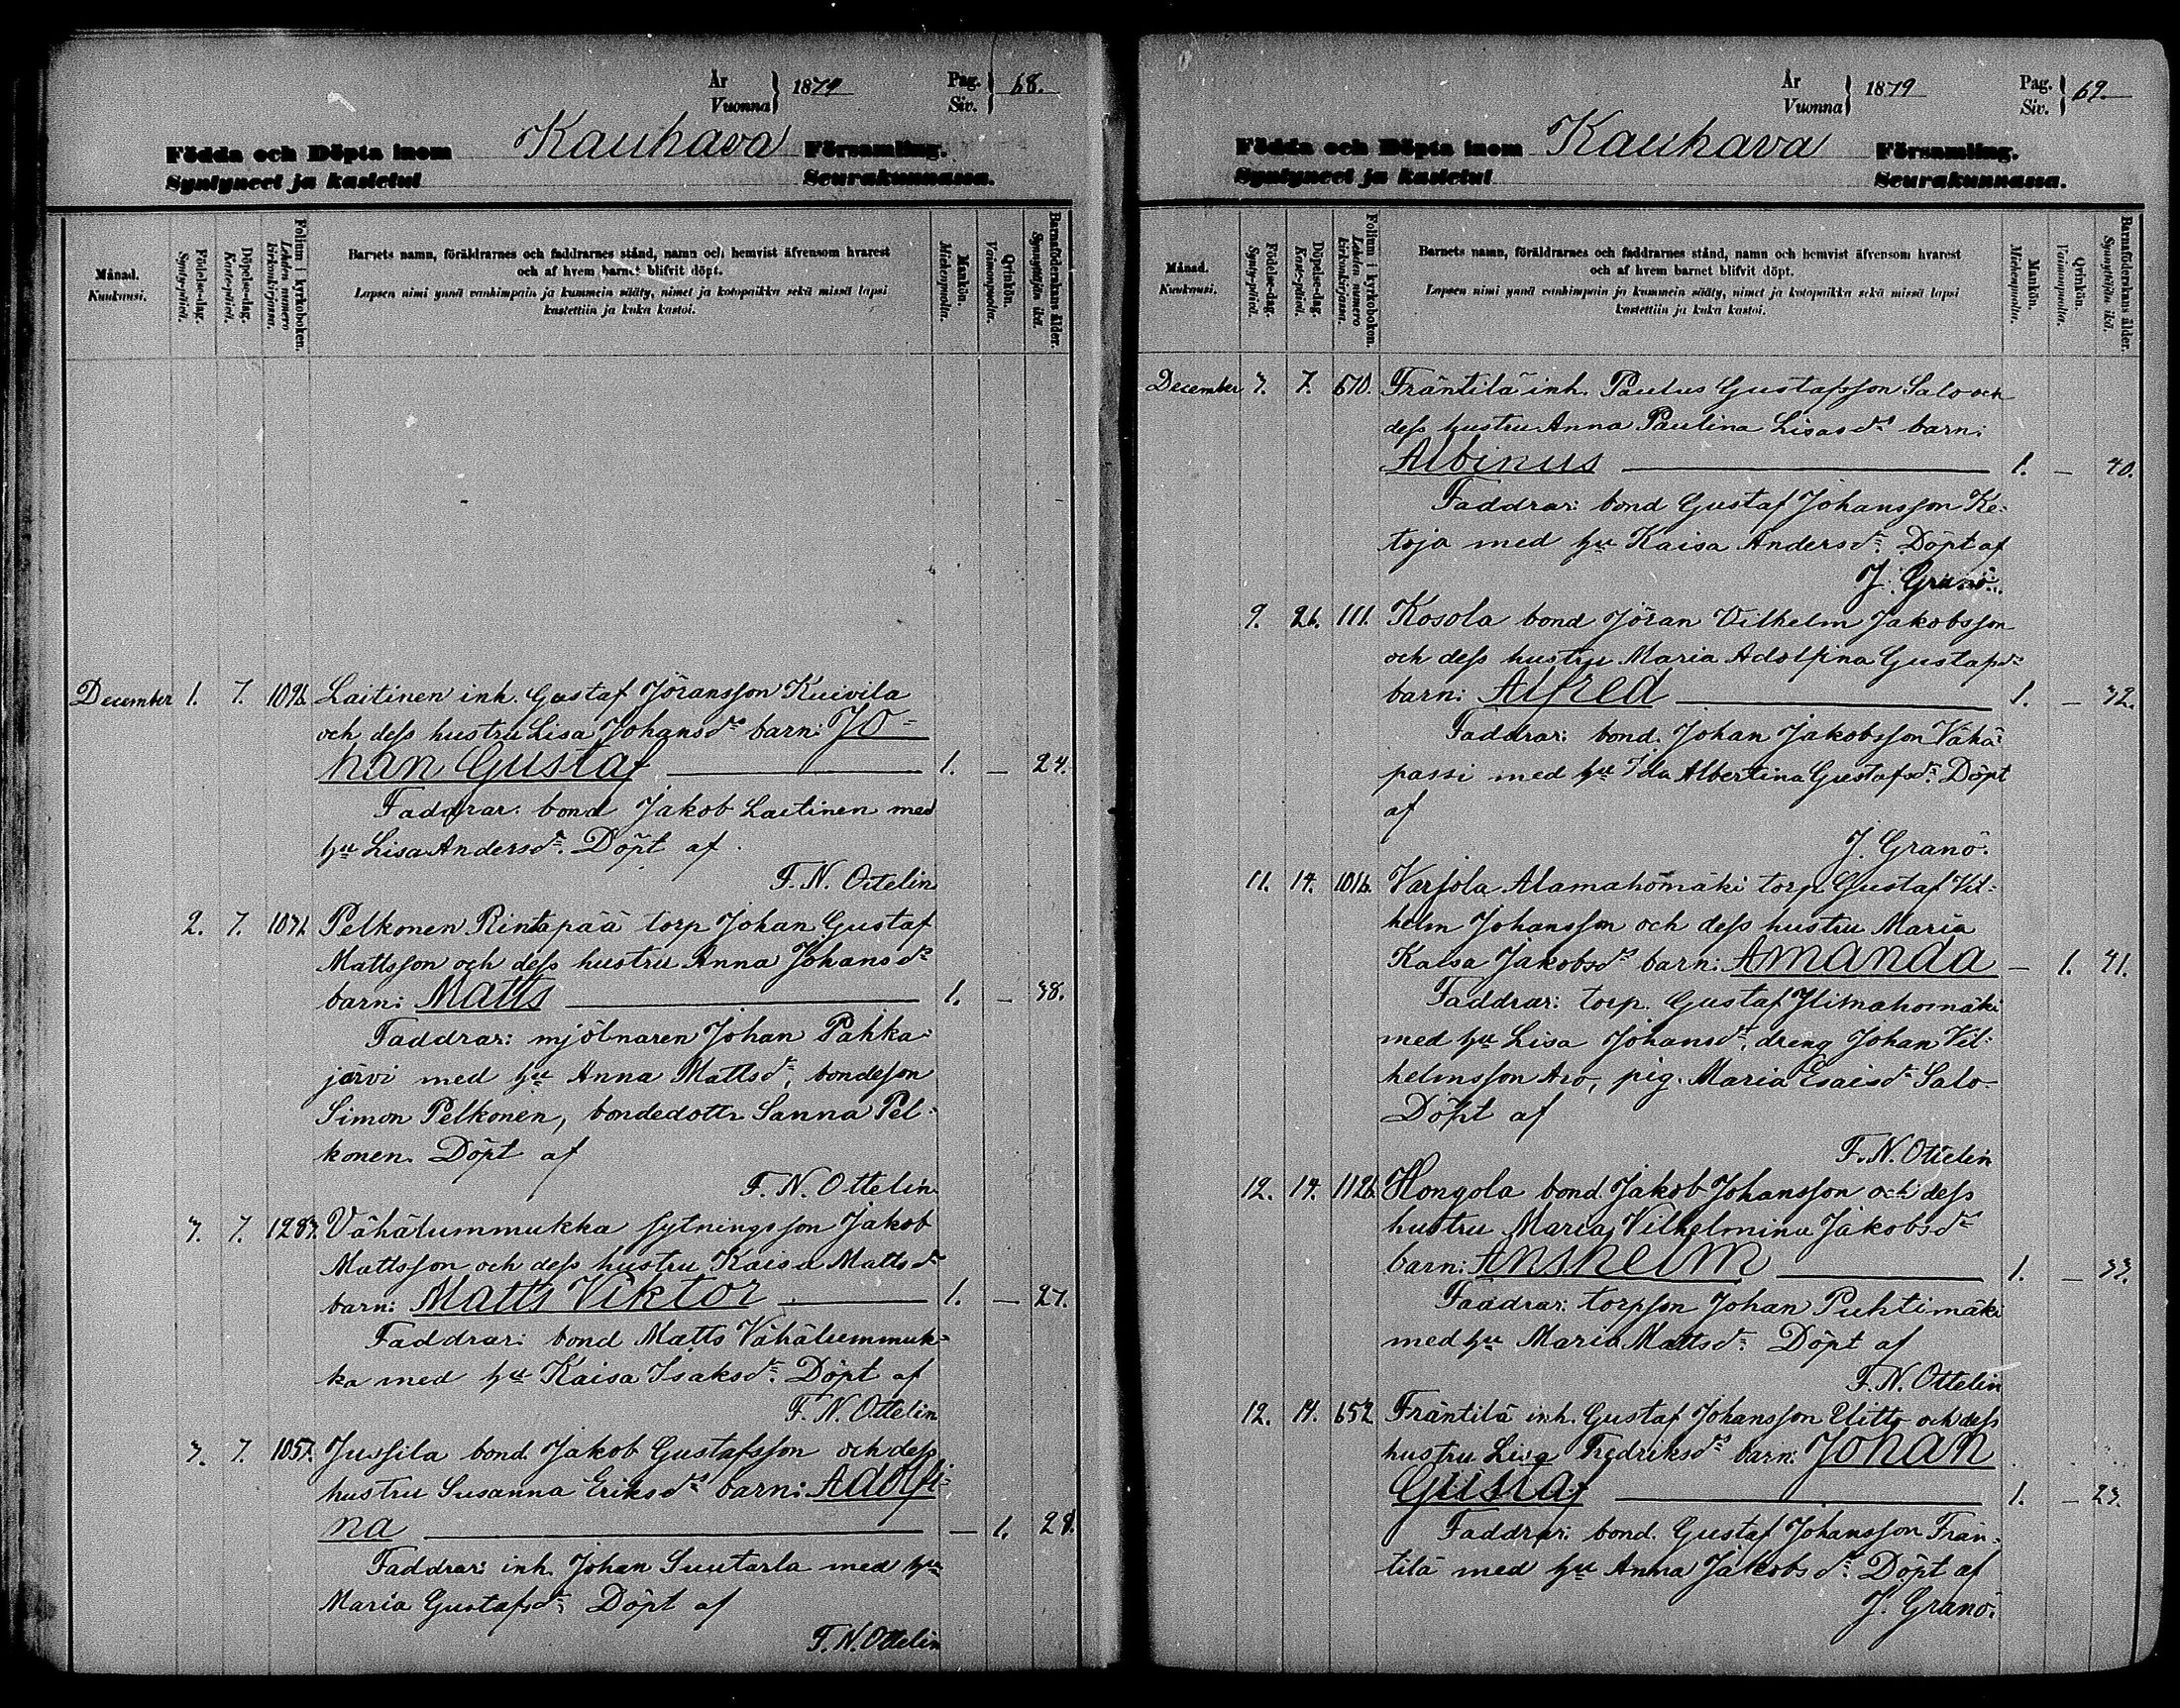 År
Vuonna } 1879 Pag.
Siv. } 68.
Födda och Döpta inom Kauhava Församling.
Syntyneet ja kastetut Seurakunnassa.
Månad.
Kuukausi.
Födelse-dag.
Synty-päivä.
Döpelse-dag.
Kaste-päivä.
Folium i kyrkoboken.
Lehden numero kirkonkirjassa.
Barnets namn, föräldrarnes och faddrarnes stånd, namn och hemvist äfvensom hvarest
och af hvem barnet blifvit döpt.
Lapsen nimi ynnä vanhimpain ja kummein sääty, nimet ja kotopaikka sekä missä lapsi
kastettiin ja kuka kastoi.
Mankön.
Miehenpuolia.
Qvinkön.
Vaimonpuolia.
Barnaföderskans ålder.
Synnyttäjän ikä.
December 1. 7. 1096. Laitinen inh. Gustaf Jöransson Kuivila
och dess hustru Lisa Johansdr barn: Jo-
han Gustaf 1. — 24.
Faddrar: bond Jakob Laitinen med
hu Lisa Andersdr. Döpt af
F. N. Ottelin
2. 7. 1071. Pelkonen Rintapää torp Johan Gustaf
Mattsson och dess hustru Anna Johansdr
barn: Matts 1. — 38.
Faddrar: mjölnaren Johan Pahka-
järvi med hu Anna Mattsdr, bondesson
Simon Pelkonen, bondedottr Sanna Pel-
konen. Döpt af
F. N. Ottelin
3. 7. 1283. Vähälummukka sytningsson Jakob
Mattsson och dess hustru Kaisa Mattsdr
barn: Matts Viktor 1. — 27.
Faddrar: bond Matts Vähälummuk-
ka med hu Kaisa Isaksdr. Döpt af
F. N. Ottelin
3. 7. 1057. Jussila bond. Jakob Gustafsson och dess
hustru Susanna Eriksdr barn: Adolfi-
na — 1. 28.
Faddrar: inh. Johan Suutarla med hu
Maria Gustafsdr. Döpt af
F. N. Ottelin
År
Vuonna } 1879 Pag.
Siv. } 69.
Födda och Döpta inom Kauhava Församling.
Syntyneet ja kastetut Seurakunnassa.
Månad.
Kuukausi.
Födelse-dag.
Synty-päivä.
Döpelse-dag.
Kaste-päivä.
Folium i kyrkoboken.
Lehden numero kirkonkirjassa.
Barnets namn, föräldrarnes och faddrarnes stånd, namn och hemvist äfvensom hvarest
och af hvem barnet blifvit döpt.
Lapsen nimi ynnä vanhimpain ja kummein sääty, nimet ja kotopaikka sekä missä lapsi
kastettiin ja kuka kastoi.
Mankön.
Miehenpuolia.
Qvinkön.
Vaimonpuolia.
Barnaföderskans ålder.
Synnyttäjän ikä.
December 3. 7. 670. Fräntilä inh. Paulus Gustafsson Salo och
dess hustru Anna Paulina Lisasdr barn:
Albinus 1. — 40.
Faddrar: bond Gustaf Johansson Ke-
toja med hu Kaisa Andersdr. Döpt af
J. Granö.
9. 26. 111. Kosola bond Jöran Vilhelm Jakobsson
och dess hustru Maria Adolfina Gustafsdr
barn: Alfred 1. — 32.
Faddrar: bond. Johan Jakobsson Vähä-
passi med hu Ida Albertina Gustafsdr. Döpt
af
J. Granö.
11. 14. 1016. Varjola Alamahomäki torp. Gustaf Vil-
helm Johansson och dess hustru Maria
Kaisa Jakobsdr barn: Amanda — 1. 41.
Faddrar: torp. Gustaf Ylimahomäki
med hu Lisa Johansdr, dreng Johan Vil-
helmsson Aro, pig. Maria Esaisdr Salo
Döpt af
F. N. Ottelin
12. 14. 1126. Hongola bond Jakob Johansson och dess
hustru Maria Vilhelmina Jakobsdr
barn: Anshelm 1. — 33.
Faddrar: torpson Johan Puhtimäki
med hu Maria Mattsdr. Döpt af
F. N. Ottelin
12. 14. 652. Fräntilä inh. Gustaf Johansson Uitto och dess
hustru Lisa Fredriksdr barn: Johan
Gustaf 1. — 23.
Faddrar: bond. Gustaf Johansson Frän-
tilä med hu Anna Jakobsdr. Döpt af
J. Granö.